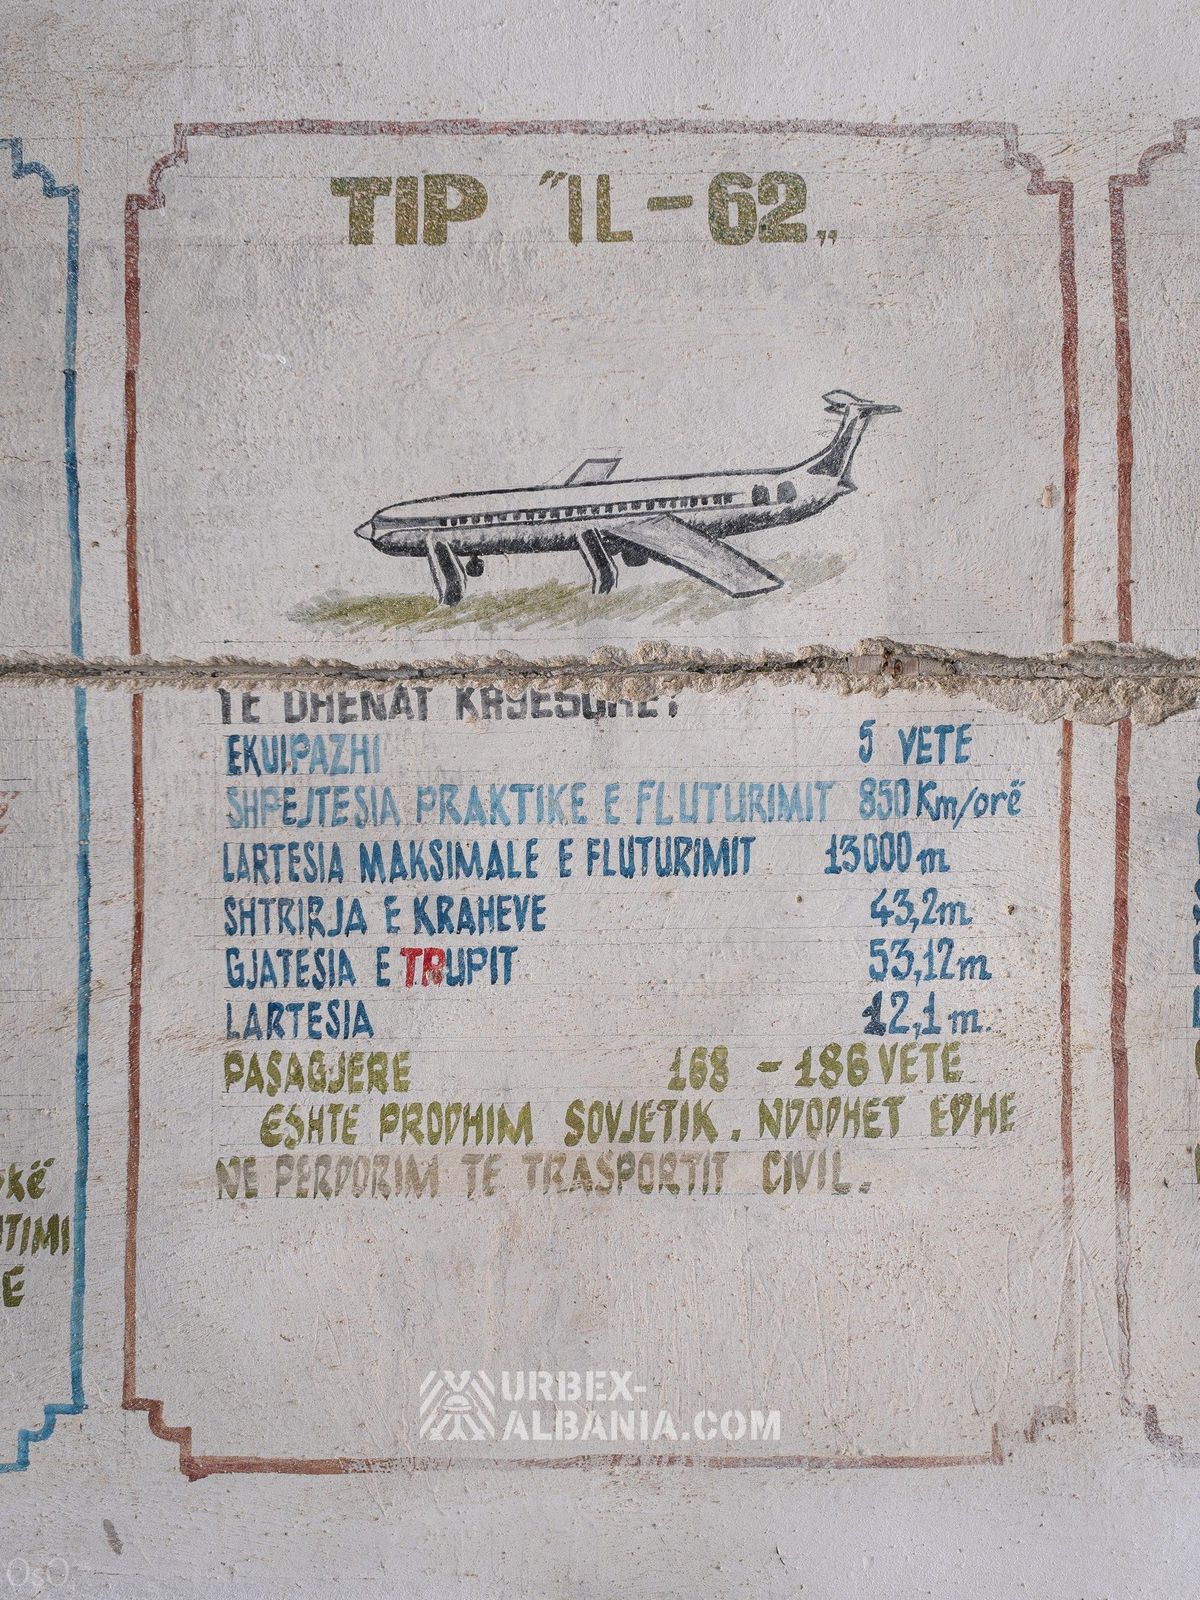 TIP "IL-62„
TE DHENAT KRYESORE:
EKUIPAZHI 5 VETE
SHPEJTESIA PRAKTIKE E FLUTURIMIT 850 Km/orë
LARTESIA MAKSIMALE E FLUTURIMIT 13000 m
SHTRIRJA E KRAHEVE 43,2m
GJATESIA E TRUPIT 53,12m
LARTESIA 12,1 m.
PASAGJERE 168 - 186 VETE
ESHTE PRODHIM SOVJETIK. NDODHET EDHE
NE PERDORIM TE TRASPORTIT CIVIL.
URBEX-
ALBANIA.COM
OsO